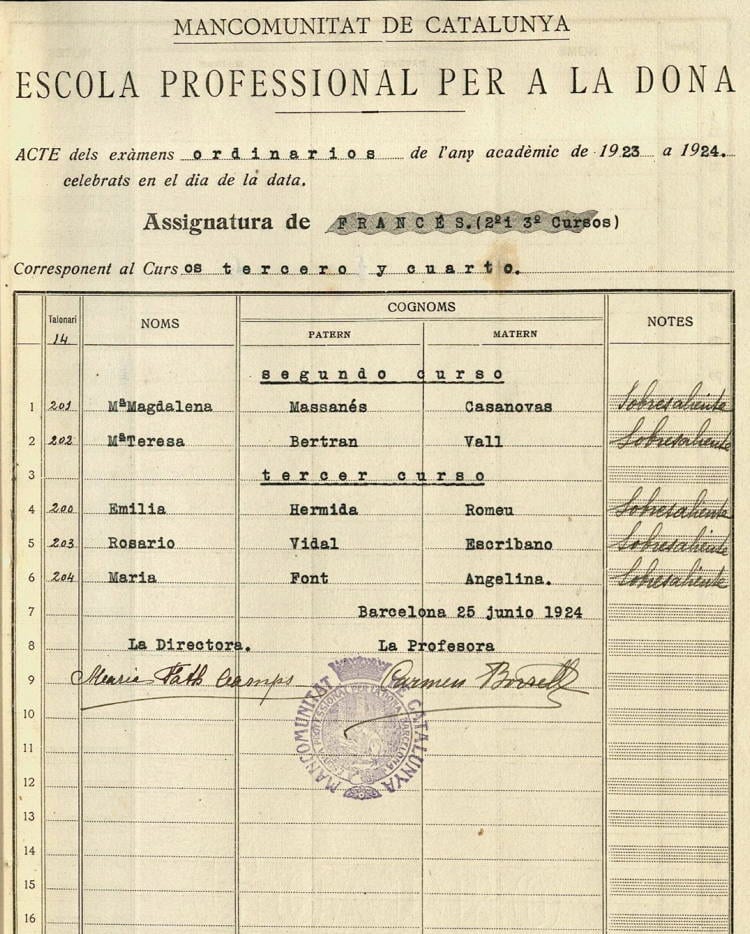 MANCOMUNITAT DE CATALUNYA
ESCOLA PROFESSIONAL PER A LA DONA
ACTE dels exàmens ordinarios de l'any acadèmic de 1923 a 1924.
celebrats en el dia de la data.
Assignatura de FRANCÉS.(2º i 3º Cursos)
Corresponent al Cursos tercero y cuarto.
Talonari 14 NOMS COGNOMS NOTES
PATERN MATERN
segundo curso
1 201 MªMagdalena Massanés Casanovas Sobresaliente
2 202 MªTeresa Bertran Vall Sobresaliente
3 tercer curso
4 200 Emilia Hermida Romeu Sobresaliente
5 203 Rosario Vidal Escribano Sobresaliente
6 204 Maria Font Angelina. Sobresaliente
7 Barcelona 25 junio 1924
8 La Directora. La Profesora
9 Carmen
MANCOMUNITAT CATALUNYA
10
11
12
13
14
15
16